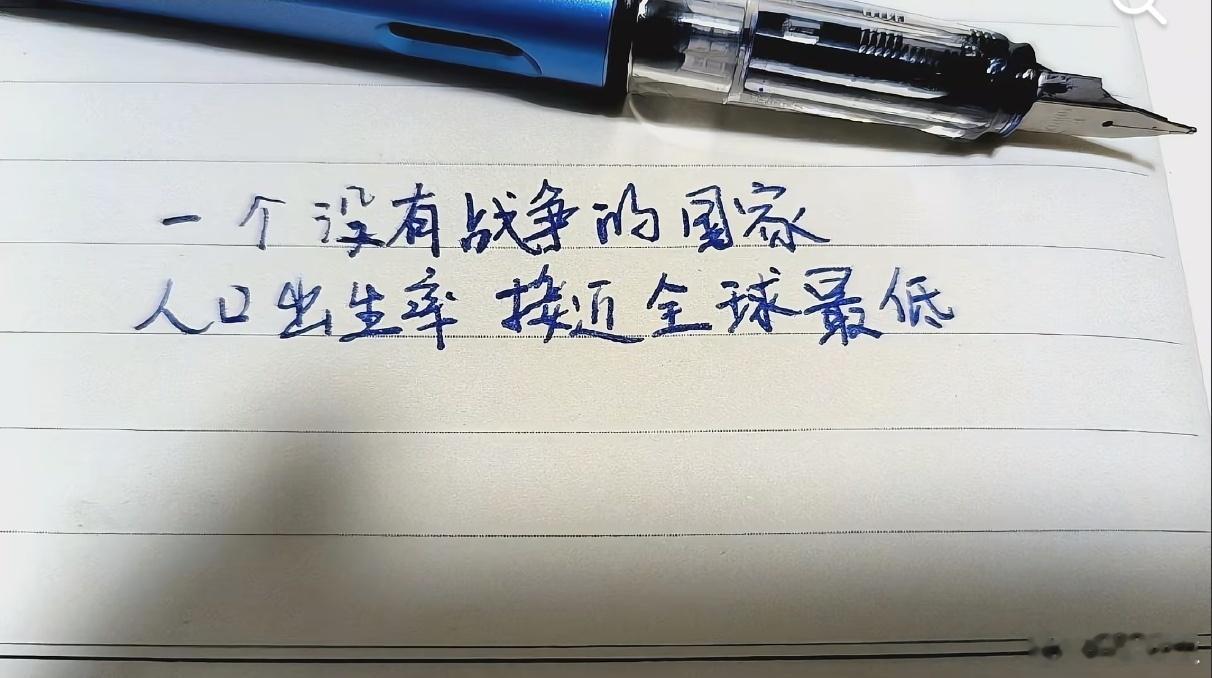 一个没有战争的国家
人口出生率 接近全球最低